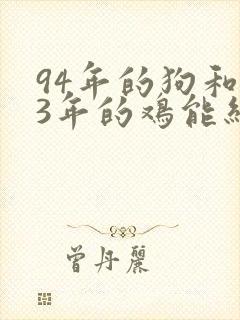 94年的狗和
3年的鸡能
曾丹丽